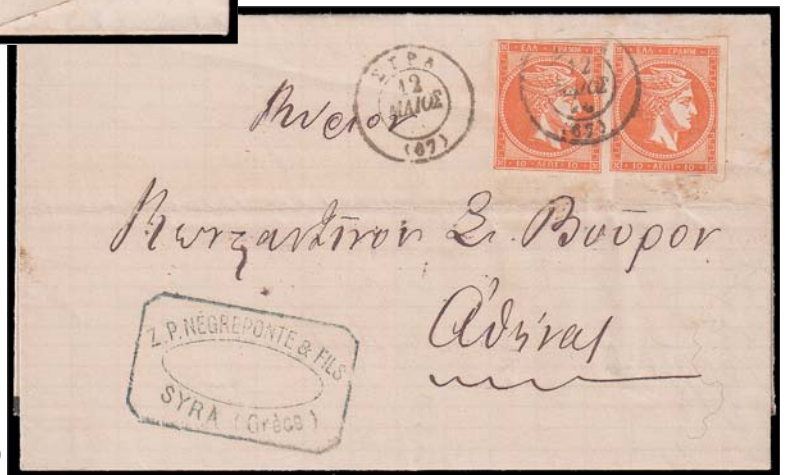 ΣΥΡΑ
12
ΜΑΙΟΣ
(67)
ΕΛΛ ΓΡΑΜΜ
10 ΛΕΠΤ 10
ΕΛΛ ΓΡΑΜΜ
10 ΛΕΠΤ 10
12
ΜΑΙΟΣ
(67)
Κύριον
Κωνσταντῖνον Σ. Βοῦρον
Ἀθήνας
Z.P. NÉGREPONTE & FILS
SYRA (Grèce)